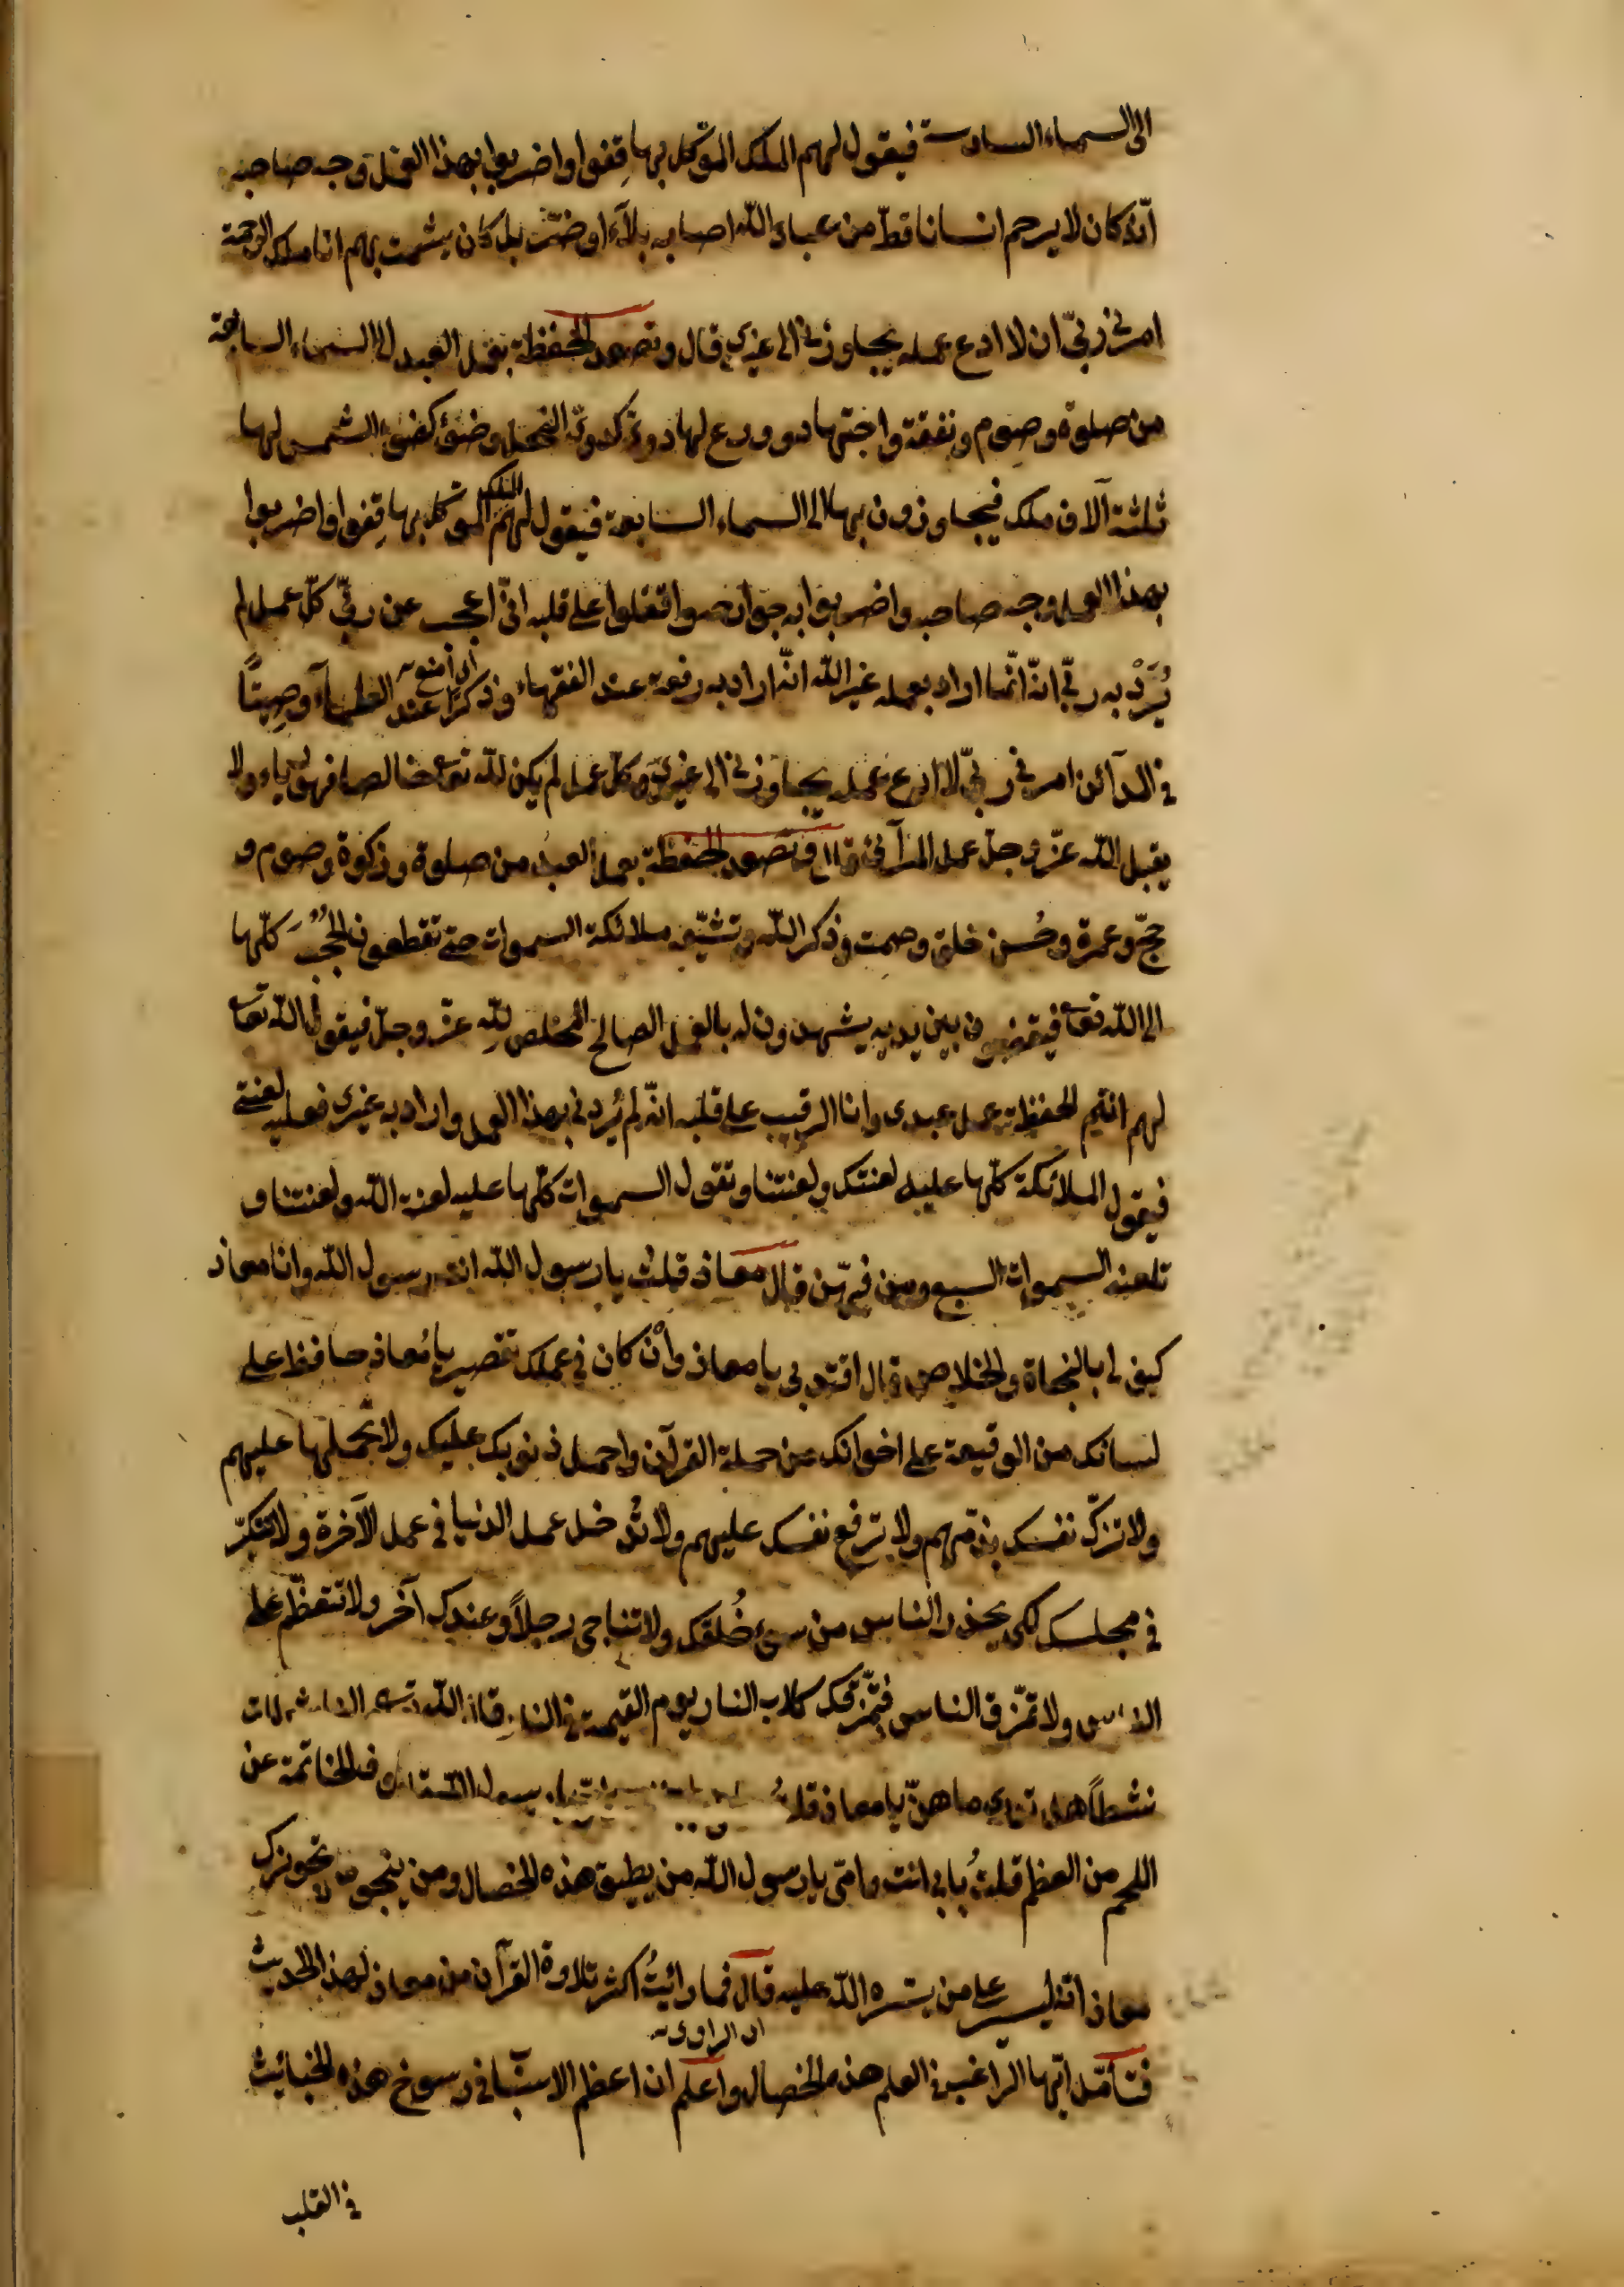 الى السماء السادسة فيقول لهم الملك الموكل بها قِفوا واضربوا بهذا العمل وجه صاحبه
انّه كان لا يرحم انسانا قطّ من عباد الله اصابه بلآء او ضرّ بل كان يشمت بهم انا ملك الرحمة
امرنى ربّى ان لا ادع عمله يجاوزنى الى غيرى قال وتصعد الحفظة بعمل العبد الى السماء السابعة
من صلوة وصوم ونفقة واجتهاد وورع لها دوىّ كدوىّ النحل وضوء كضوء الشمس لها
ثلثة آلاف ملك فيجاوزون بها الى السماء السابعة فيقول لهم الملك الموكل بها قِفوا واضربوا
بهذا العمل وجه صاحبه واضربوا به جوارحه واقفلوا على قلبه انّى احجب عن ربّى كلّ عمل لم
يُرَدْ به ربّى انّه انّما اراد بعمله غير الله انّه اراد به رفعة عند الفقهاء وذكرًا عند العلمآء وصِيتًا
فى المدآئن امرنى ربّى ان لا ادع عمله يجاوزنى الى غيرى وكلّ عمل لم يكن لله تعا خالصا فهو رياء ولا
يقبل الله عزّ وجلّ عمل المرآئى قال وتصعد الحفظة بعمل العبد من صلوة وزكوة وصوم و
حجّ وعمرة وحُسن خلق وصمت وذكر الله وتشيّعه ملائكة السموات حتى تقطعون الحُجُبَ كلّها
الى الله تعا فيقفون بين يديه يشهدون له بالعمل الصالح المخلص لِلّهِ عزّ وجلّ فيقول الله تعا
لهم انتم الحفظة على عمل عبدى وانا الرقيب على قلبه انّه لم يُردنى بهذا العمل واراد به غيرى فعليه لعنتى
فيقول الملائكة كلّها عليه لعنتك ولعنتنا وتقول السموات كلّها عليه لعنة الله ولعنتنا و
تلعنه السموات السبع ومن فيهنّ قال معاذ قلت يا رسول الله انت رسول الله وانا معاذ
كيف لى بالنجاة والخلاص قال اقتد بى يا معاذ وأن كان فى عملك تقصير يا مُعاذ حافظ على
لسانك من الوقيعة على اخوانك من حملة القرآن واحمل ذنوبك عليك ولا تحملها عليهم
ولا تزكّ نفسك بذمّهم ولا ترفع نفسك عليهم ولا تُدخل عمل الدنيا فى عمل الآخرة ولا تتكبّر
فى مجلسك لكى يحذر الناس من سوء خُلقك ولا تناجى رجلاً وعندك آخر ولا تتعظّم على
الناس ولا تمزّق الناس فتمزّقك كلاب النار يوم القيمة فى النار قال الله تعالى والناشطات
نشطاً هل تدرى ما هنّ يا معاذ قلتُ رسول الله
اللحم من العظم قلتُ بابى انت وامّى يا رسول الله من يطيق هذه الخصال ومن ينجو
معاذ انّه ليسير على من يسّره الله عليه قال فما رأيتُ اكثر تلاوة القرآن من معاذ لهذا الحديث
اى الراوى
فتأمّل ايّها الرّاغب فى العلم هذه الخصال واعلم ان اعظم الاسباب فى رسوخ هذه الخبائث
فى القلب